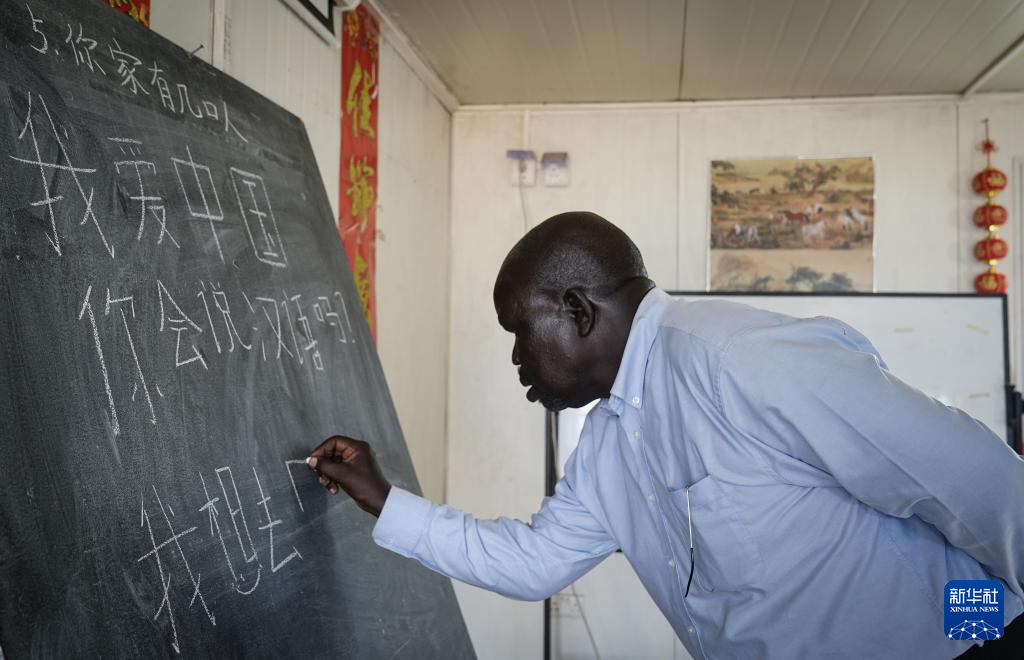 5、你家有几口人
我爱中国
你会说汉语吗?
我想去
佳節
新华社
XINHUA NEWS